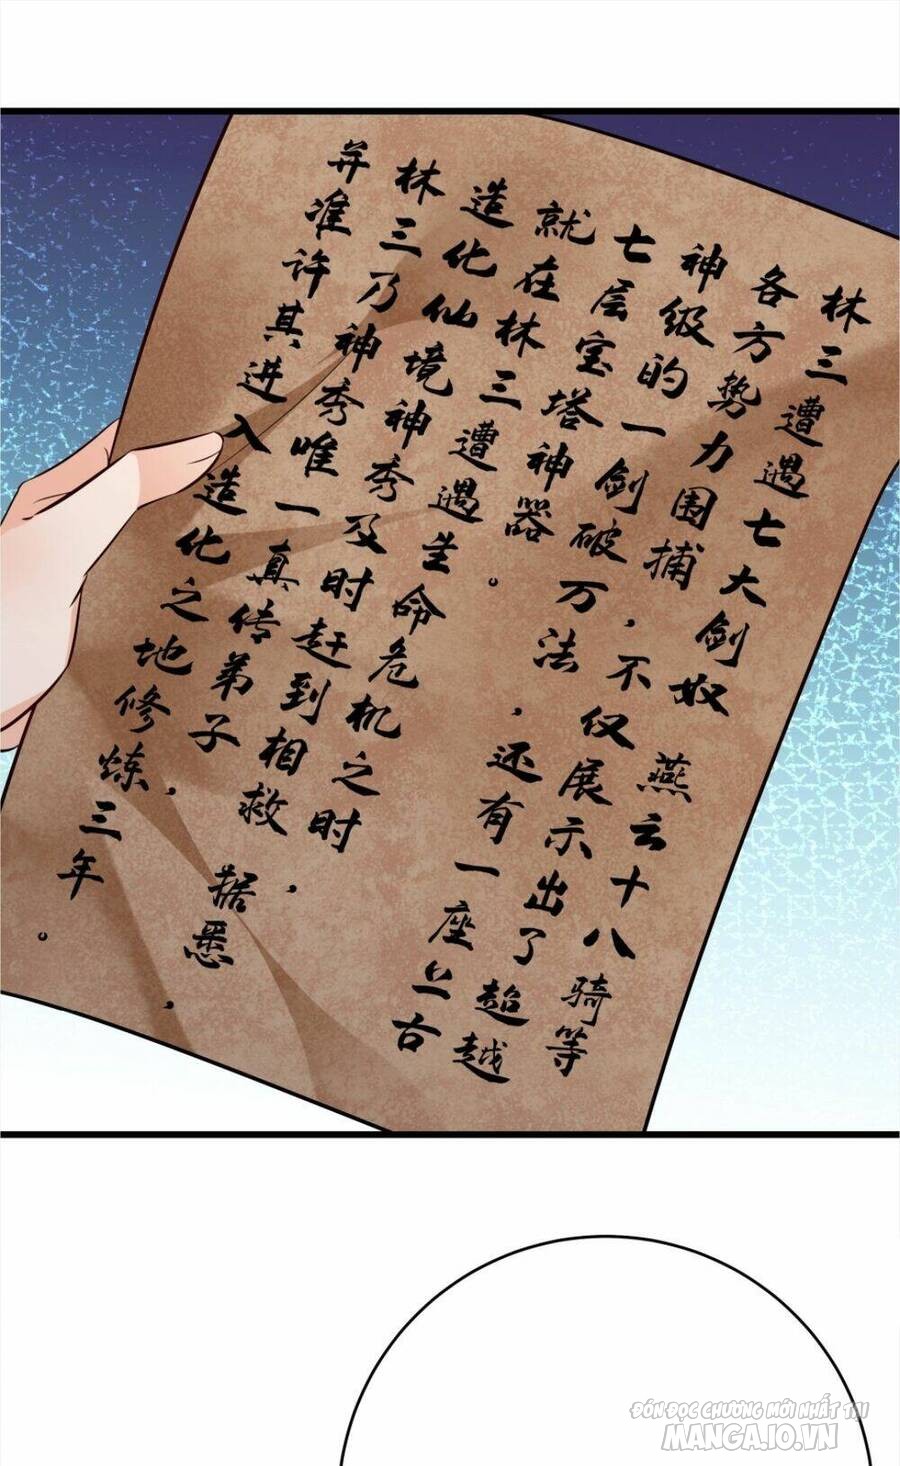 林三遭遇七大剑奴 燕云十八骑等
各方势力围捕，不仅展示出了超越
神级的一剑破万法，还有一座上古
七层宝塔神器。
就在林三遭遇生命危机之时，
造化仙境神秀及时赶到相救 据悉，
林三乃神秀唯一真传弟子，
并准许其进入造化之地修炼三年。
ĐÓN ĐỌC CHƯƠNG MỚI NHẤT TẠI
MANGA.IO.VN